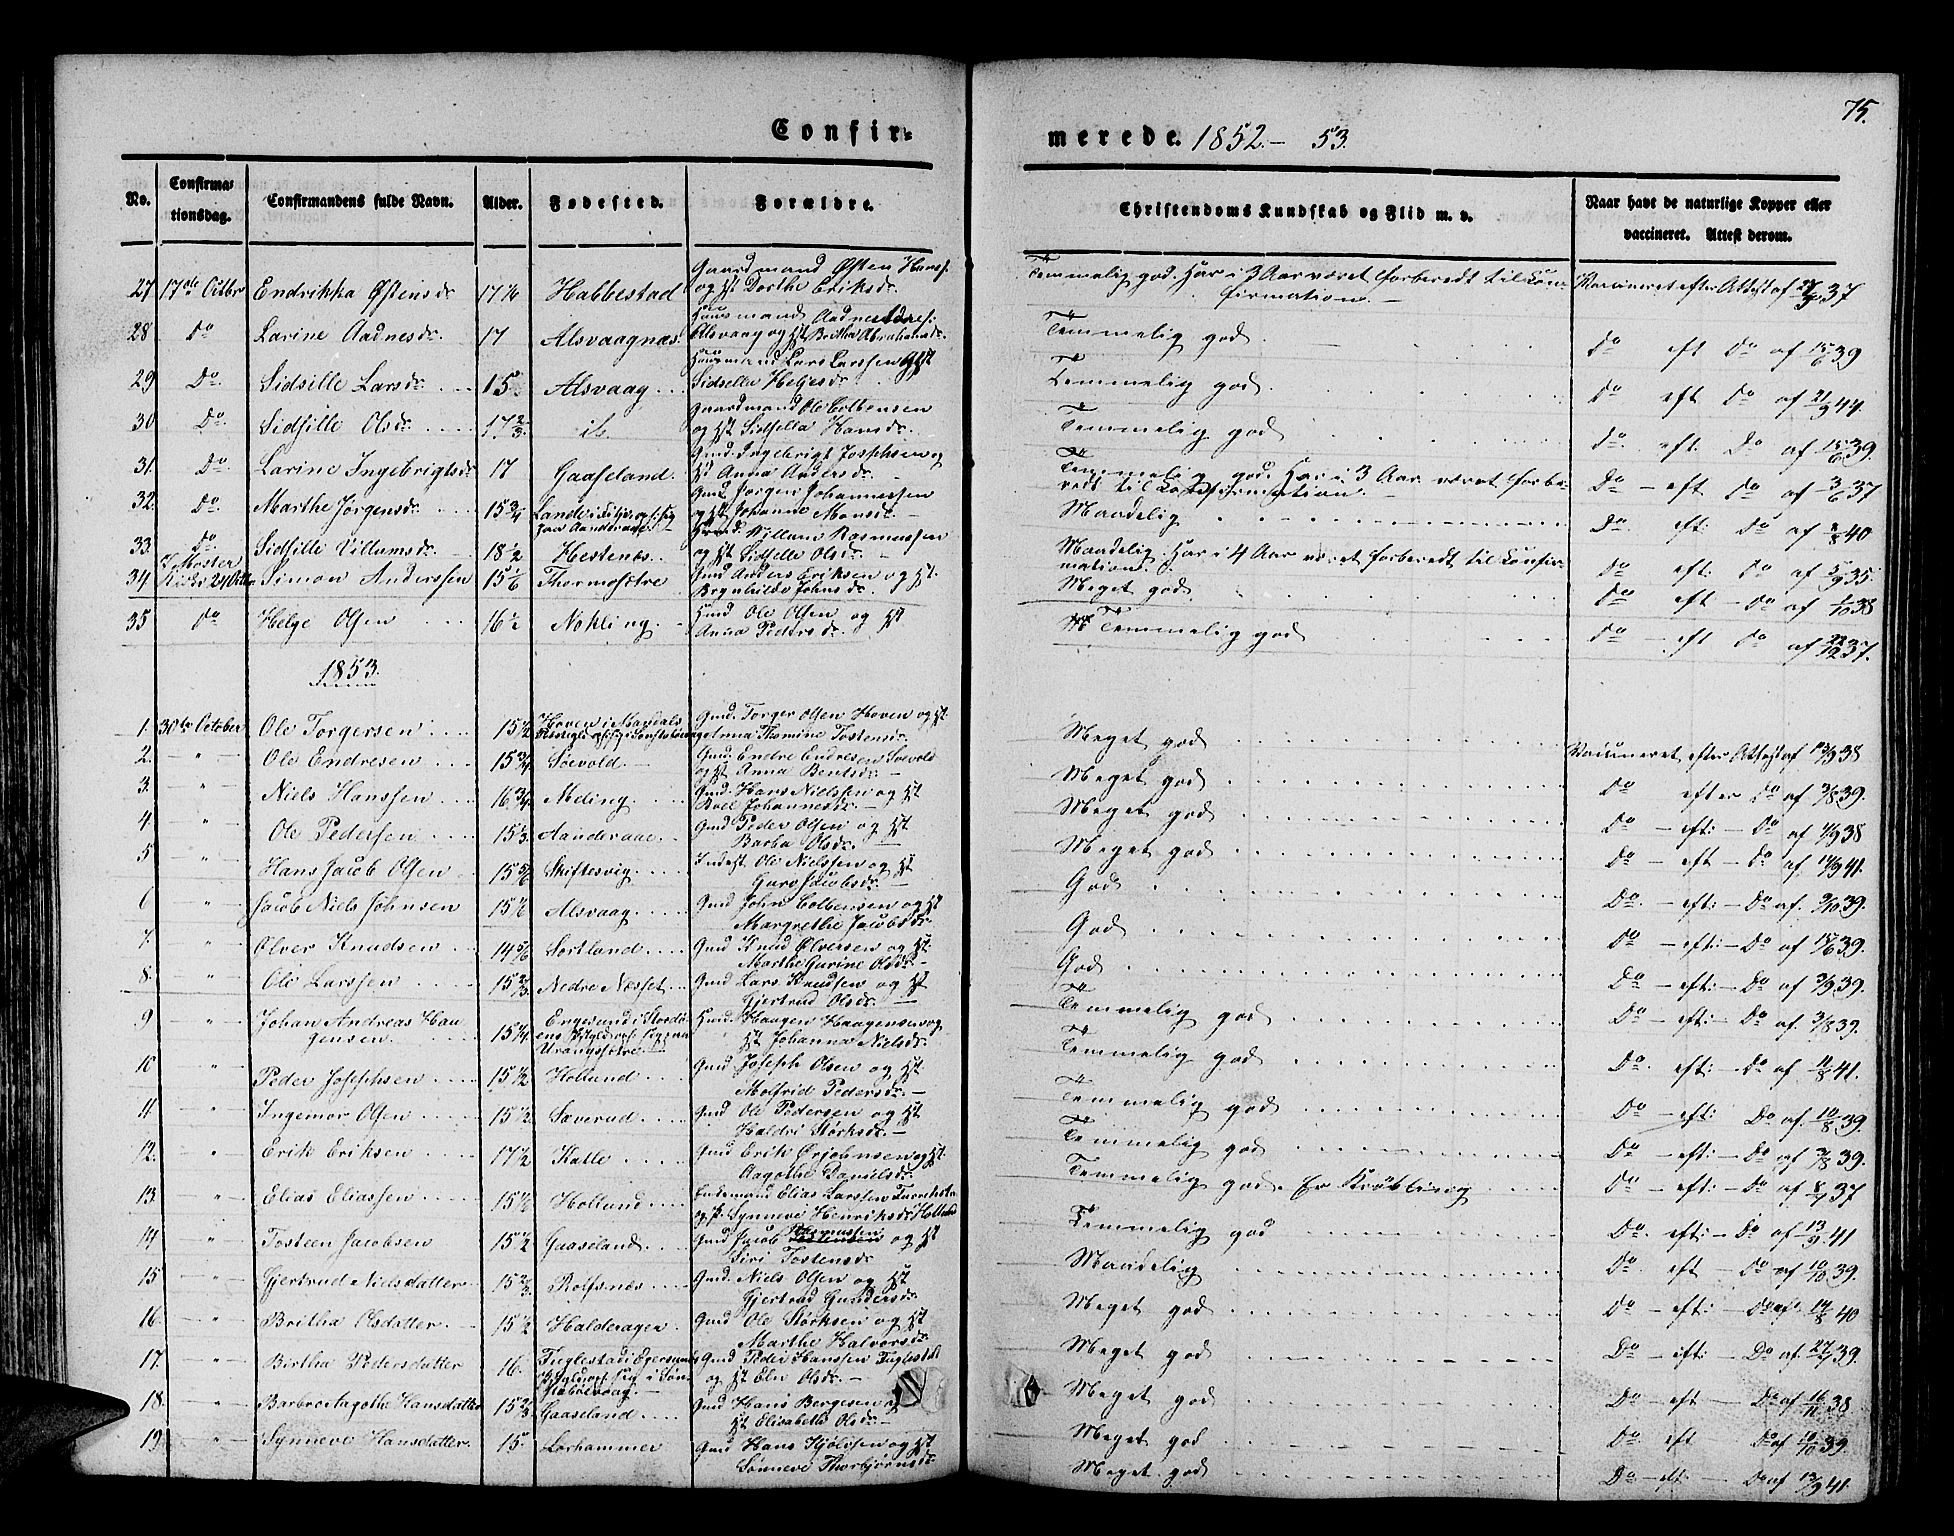 75.
Confir-
merede. 1852.- 53.
No.
Confirma-
tionsdag.
Confirmandens fulde Navn.
Alder.
Fødested.
Forældre.
Christendoms Kundskab og Flid m. v.
Naar havt de naturlige Kopper eller
vaccineret. Attest derom.
27 17de Octbr Endrikka Østensdr 17 1/6 Habbestad Gaardmand Østen Hanss. og Hst Dorthe Eriksdr. Temmelig god. Har i 3 Aar været forberedt til Con- firmation. - Vaccineret efter Attest af 37
28 Do Larine Aadnesdr. 17 Alsvaagnæs. Huusmand Alsvaag og Hst Britha Abrahamsdr. Temmelig god. Do eft Do af 15/6 39
29 Do. Sidsille Larsdr. 15 Alsvaag Huusmand Lars Larssen Hst Sidsella Helgesdr. Temmelig god. Do eft Do af 21/9 44.
30 Do. Sidsille Olsdr. 17 2/3 ib. Gaardmand Ole Colbensen og Hst Sidsella Hansdr. Temmelig god Do eft Do af 15/6 39
31. Do. Larine Ingebrigtsdr 17 Gaaseland. Gmd. Ingebrigt Josephsen og Hst Anna Andersdr. Temmelig god. Har i 3 Aar været forbe- redt til Confirmation. Do - eft Do af 3/6 37
32. Do. Marthe Jørgensdr. 15 3/4 Gmd Jørgen Johannessen og Hst Johanne Monsdr. - Maadelig Do eft: Do af 40
33. Do Sidsille Villumsdr. 18 1/2 Hestenæs. Villum Rasmussen og Hst Sidselle Olsdr. Maadelig. Har i 4 Aar været forberedt til Confir- mation. Do eft: Do af 5/9 35.
34 I Moster Kirke 24 Octbr Simon Anderssen 15 1/6 Thormosøtre Gmd Anders Eriksen og Hst. Brynhilde Johnsdr. Meget god Do eft - Do af 1/10 38
35 Do Helge Olsen 16 1/2 Nohling Hmd Ole Olsen og Hst Anna Pedersdr. Temmelig god Do - eft Do af 22/12 37.
1853.
1. 30te October Ole Torgersen 15 1/2 Hoven i Mandals Gmd. Torger Olsen Hoven og Hst. Anna Thomine Tostensdr. Meget god Vaccineret efter Attest af 13/9 38
2. - " - Ole Endresen 15 3/4 Søevold. Gmd. Endre Endresen Soevold og Hst Anna Bentsdr. - Meget god Do efter Do af 3/8 39.
3. - " - Niels Hanssen 16 3/4 Meling. Gmd. Hans Nielssen og Hst Boel Johannesdr. - Meget god Do - eft: - Do af 4/9 38
4 - " - Ole Pedersen 15 1/3. Aanderaae. Gmd Peder Olsen og Hst Barba Olsdr. - Meget god Do - eft - Do af 14/9 41.
5 - " - Hans Jacob Olsen 15 5/6 Skiftesvig. Indest. Ole Nielssen og Hst Guro Jacobsdr. - God Do - eft: - Do af. 9/10 39.
6 - " - Jacob Niels Johnsen 15 1/6 Alsvaag. Gmd John Colbensen og Hst Margrethe Jacobsdr. God Do - eft: - Do af 15/6 39.
7. - " - Olver Knudsen 14 5/6 Sortland. Gmd Knud Olversen og Hst. Marthe Gurine Olsdr. - God Do - eft: - Do af 3/9 39.
8. - " - Ole Larssen 15 2/3. Nedre Næsset. Gmd Lars Knudsen og Hst Gjertrud Olsdr. - Temmelig god Do - eft: - Do af. 3/8 39.
9 - " - Johan Andreas Hau- gensen. 15 1/4. Engesund i Stordø- ens Uranygsøtre Hmd. Haagen Haagensen og Hst Johanna Nielsdr. Temmelig god Do. eft: - Do af 11/8 41.
10 - " - Peder Josephsen 15 1/2 Holland Gmd Joseph Olsen og Hst Molfrid Pedersdr. - Temmelig god Do - eft: Do af. 10/8 39.
11. - " - Ingemor Olsen 15 1/2 Sæverud. Gmd Ole Pedersen og Hst Haldri Størksdr. - Temmelig god Do - eft: - Do af. 3/8 39.
12. - " - Erik Eriksen 17 1/2 Kalle Gmd Erik Ørjohnsen og Hst. Aagothe Danielsdr. Temmelig god. Er Krøbling Do - eft: - Do af 8/7 37
13. - " - Elias Eliassen 15 1/2 Holland Enkemand Elias Larssen og P. Synneve Henriksdr. Holland Temmelig god Do. - eft: - Do af 13/9 41
14 - " - Tosteen Jacobsen 15 1/2 Gaaseland. Gmd Jacob Rasmussen og Hst Siri Tostensdr. Maadelig Do. eft - Do af 10/10 39.
15 - " - Gjertrud Nielsdatter 15 2/3. Rolfsnæs Gmd. Niels Olsen og Hst Gjertrud Gundersdr. Meget god Do - eft: - Do af. 14/8 40
16 - " - Britha Olsdatter 15 1/2 Halderagen. Gmd Ole Størksen og Hst Marthe Halvorsdr. Meget god Do - eft: - Do af. 27/7 39.
17. - " - Birtha Pedersdatter 16. Fuglestad i Egersunds Gmd Peder Hanssen Fuglestad og Hst Elen Olsdr. - Meget god Do - eft - Do af. 16/11 38
18. - " - Barbro Aagothe Hansdatter 15 2/3 Gaaseland Gmd Hans Bergesen og Hst Elisabethe Olsdr. - Meget god Do. eft Do af 10/10 39.
19. - " - Synneve Hansdatter. 15. Lorhammer Gmd Hans Kjølssen og Hst Sønneve Thorbjørnsdr. Meget god Do - eft - Do af 13/9 41.